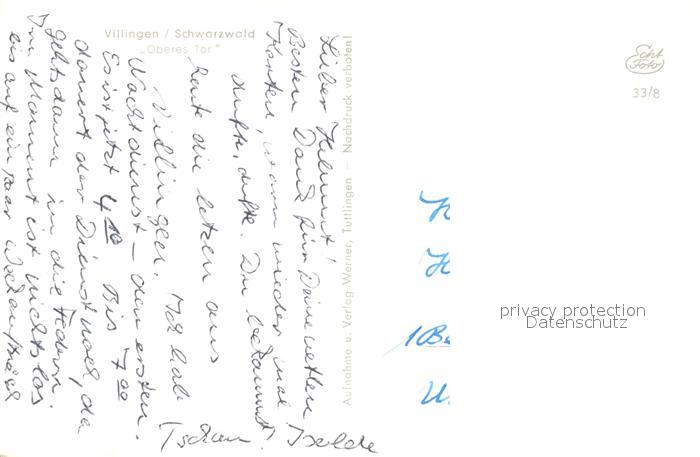 Villingen / Schwarzwald
„Oberes Tor"
Echt
Foto
33/8
Aufnahme u. Verlag Werner, Tuttlingen – Nachdruck verboten!
Lieber Helmut!
Besten Dank für Deine netten
Karten, waren wieder mal
dufte, dufte. Du bekommst
heute die letzen aus
Villingen. Ich hab
Nachtdienst – den ersten.
Es ist jetzt 4 00 Bis 7 00
dauert der Dienst noch, da
gehts dann in die Federn.
Im Moment ist nichts los
bis auf ein paar
Tschau! Isolde
privacy protection
Datenschutz